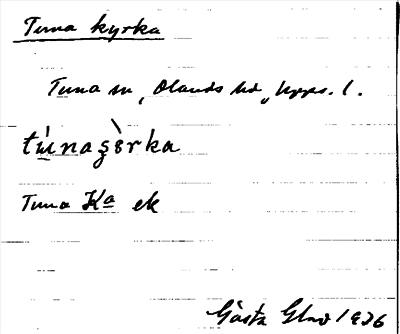 Tuna kyrka
Tuna sn, Olands hd, Upps. l.
tùnaʂɛ̀rka
Tuna Ka ek
Gösta 1936